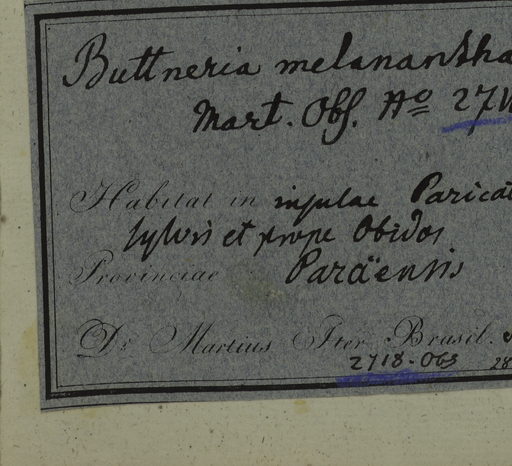 Buttneria melanantha
Mart. Obs. No 27
Habitat in insulae Paricat
sylvis et prope Obidos
Provinciae Paraënsis
Dr Martius Iter Brasil.
2718. Obs 28